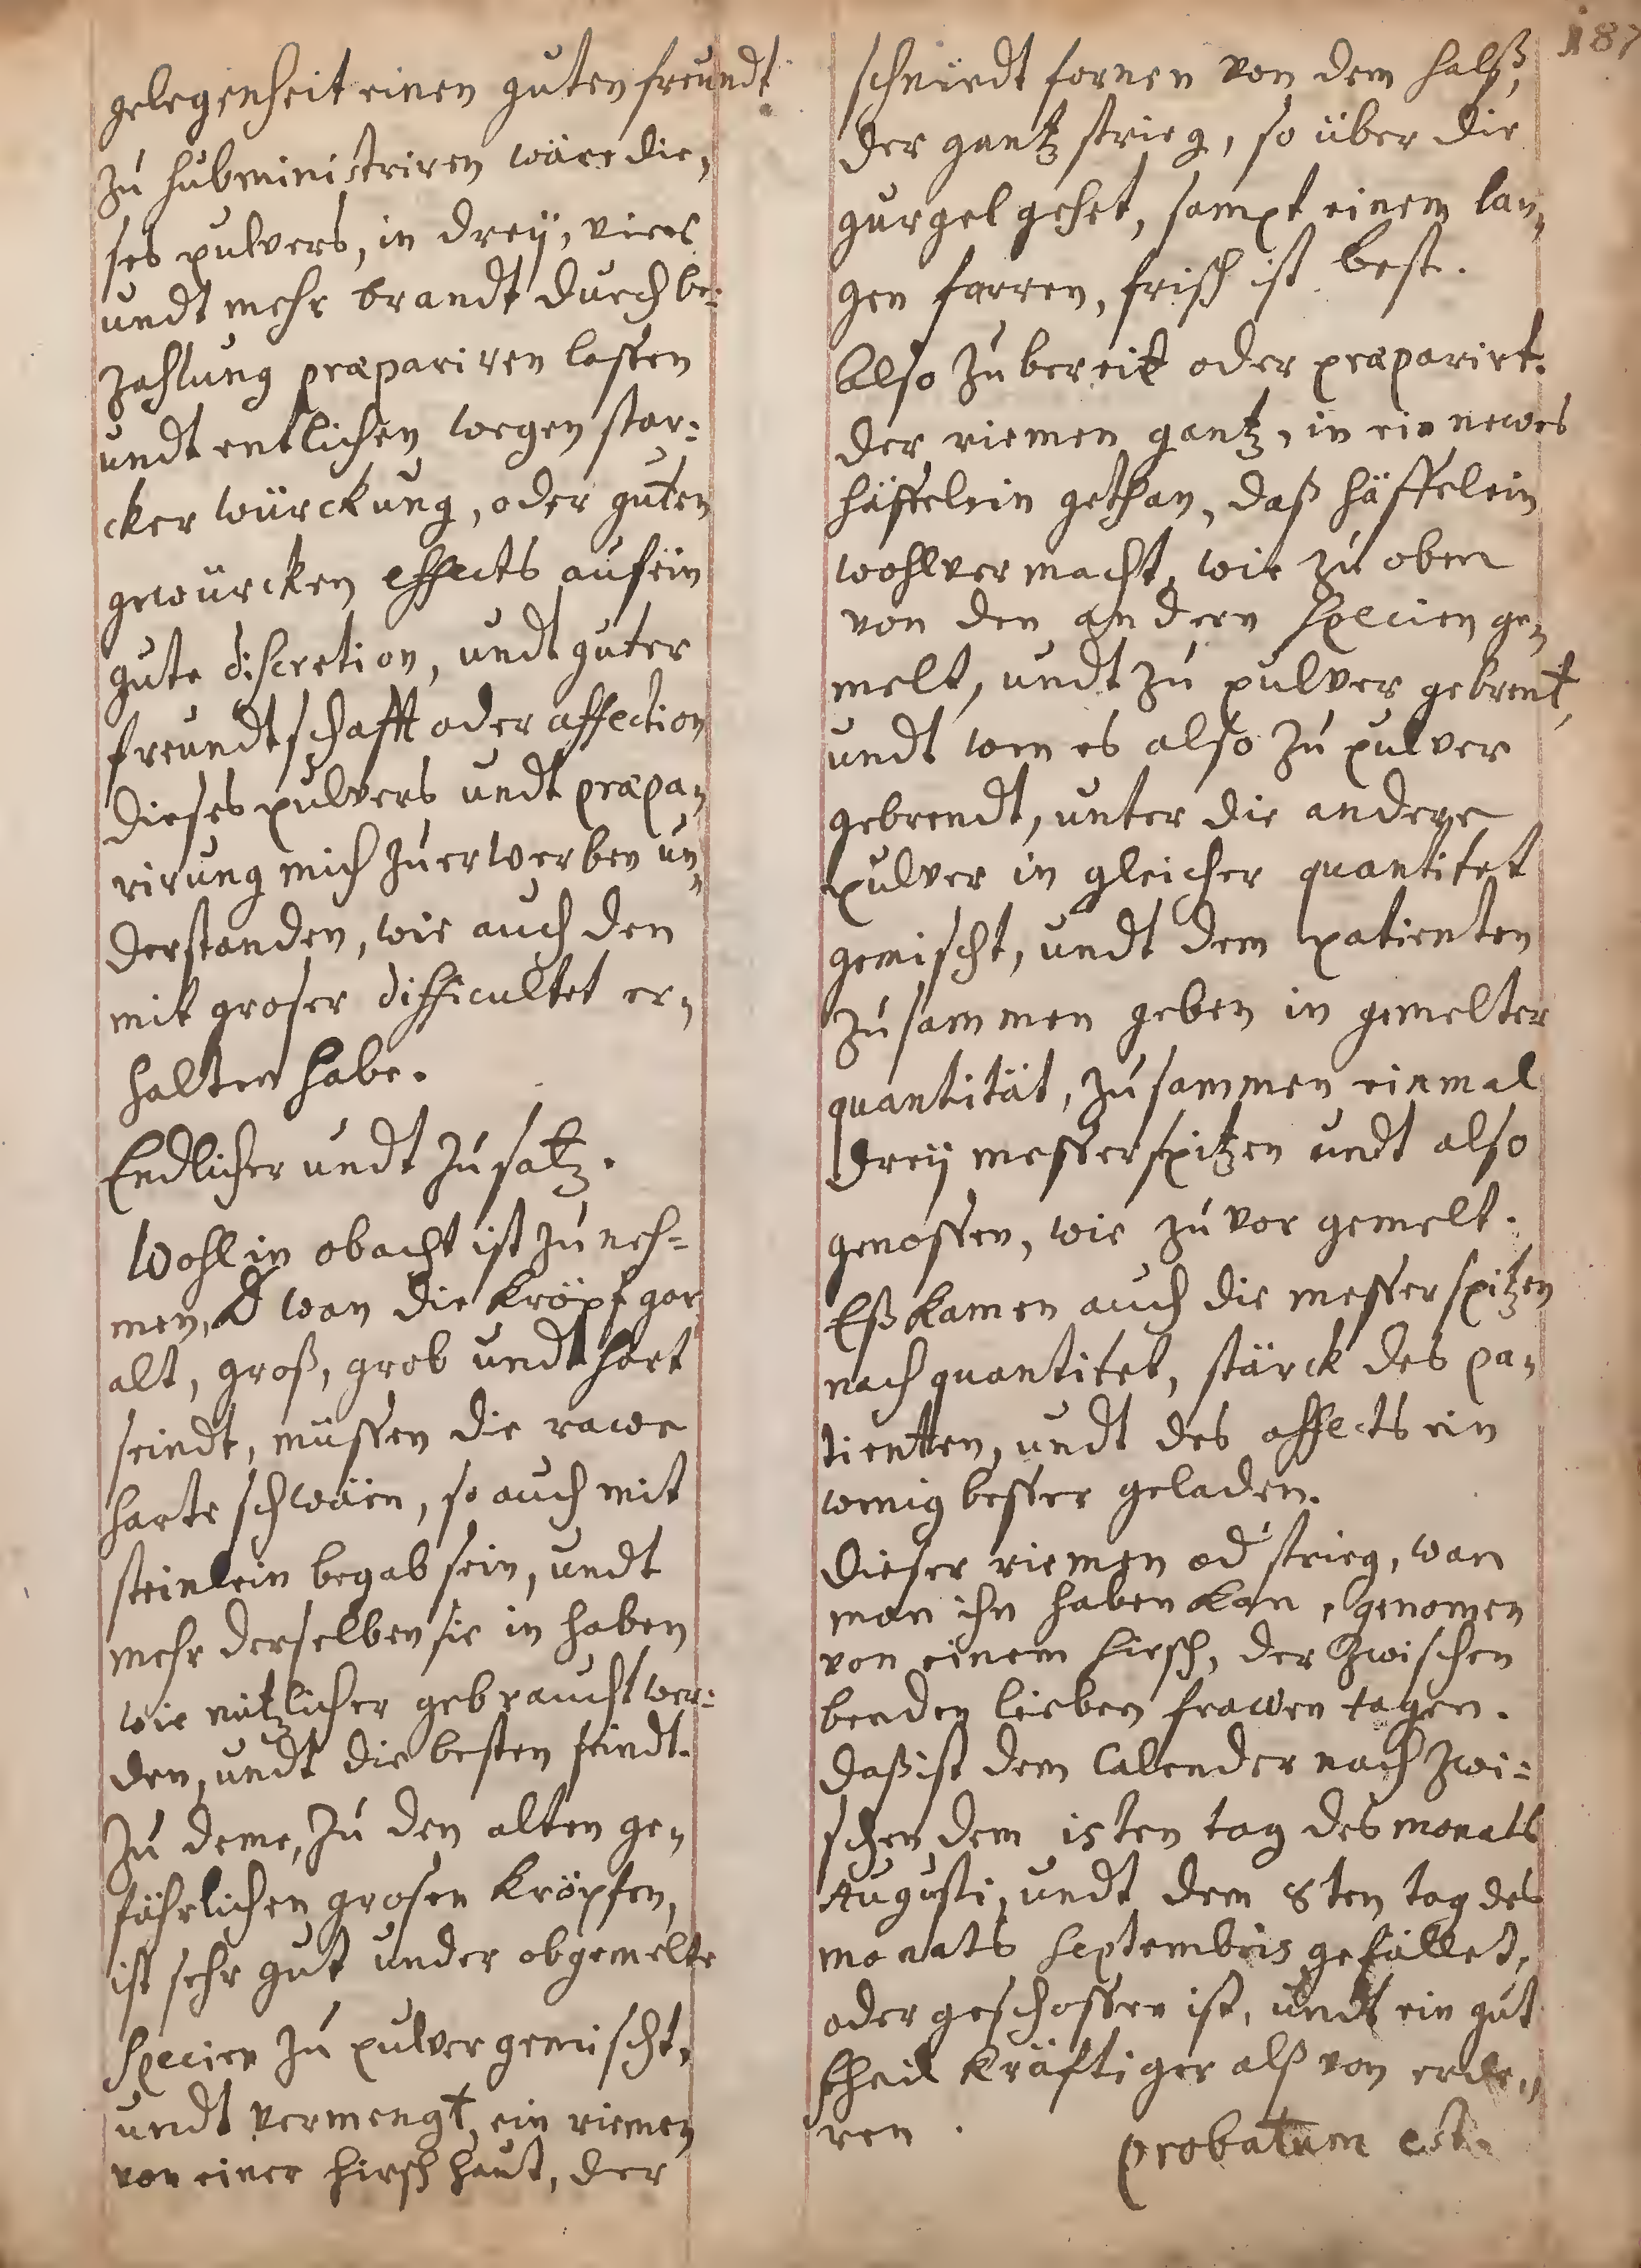 187
gelegenheit einen guten freundt
zu subministriren wäre die„
ses pulvers, in dreÿ, vier
undt mehr brandt durch be:
zahlung præpariren lassen
undt entlichen wegen star:
cker würckung, oder guten
gewürcken effects auf ein
gute discretion, undt guter
freundtschafft oder affection
dieses pulvers undt præpa„
rirung mich zu erwerben un„
derstanden, wie auch den
mit groser difficultet er„
halten habe.
Endlicher undt zusatz.
Wohl in obacht ist zu neh=
men, d wan die Kröpf gar
alt, groß, grob undt hart
seindt, müssen die rawe
harte schwäm, so auch mit
steinlein begab sein, undt
mehr derselben sie in haben
wie nützlicher gebraucht wer:
den, undt die besten seindt.
Zu deme, zu den alten ge„
fährlichen grosen Kröpfen,
ist sehr gut under obgemelte
specien zu pulver gemischt,
undt vermengt, ein riemen
von einer hirsch haut, der
schneidt fornen von dem halß,
der gantz strieg, so über die
gurgel gehet, sampt einem lan„
gen farren, frisch ist best.
Also zu bereit oder præparirt.
der riemen gantz, in ein newes
häffelein gethan, daß häffelein
wohl vermacht, wie zu oben
von den andern specien ge„
melt, undt zu pulver gebrent,
undt wen es also zu pulver
gebrendt, unter die andere
pulver in gleicher quantitet
gemischt, undt dem patienten
zusammen geben in gemelter
quantität, zusammen einmal
dreÿ messerspitzen undt also
genossen, wie zuvor gemelt.
Eß kamen auch die messerspitzen
nach quantitet, stärck des pa„
tientten, undt des affects ein
wenig besser geladen.
Dieser riemen od strieg, wan
man ihn haben kan, genomen
von einem hirsch, der zwischen
beyden lieben frawen tagen.
daß ist dem Calender nach zwi=
schen dem 15ten tag des monats
Augusti, undt dem 8ten tag des
monats septembris gefället,
oder geschossen ist, undt ein gut
theil kräftiger alß von ande„
ren.
probatum est.